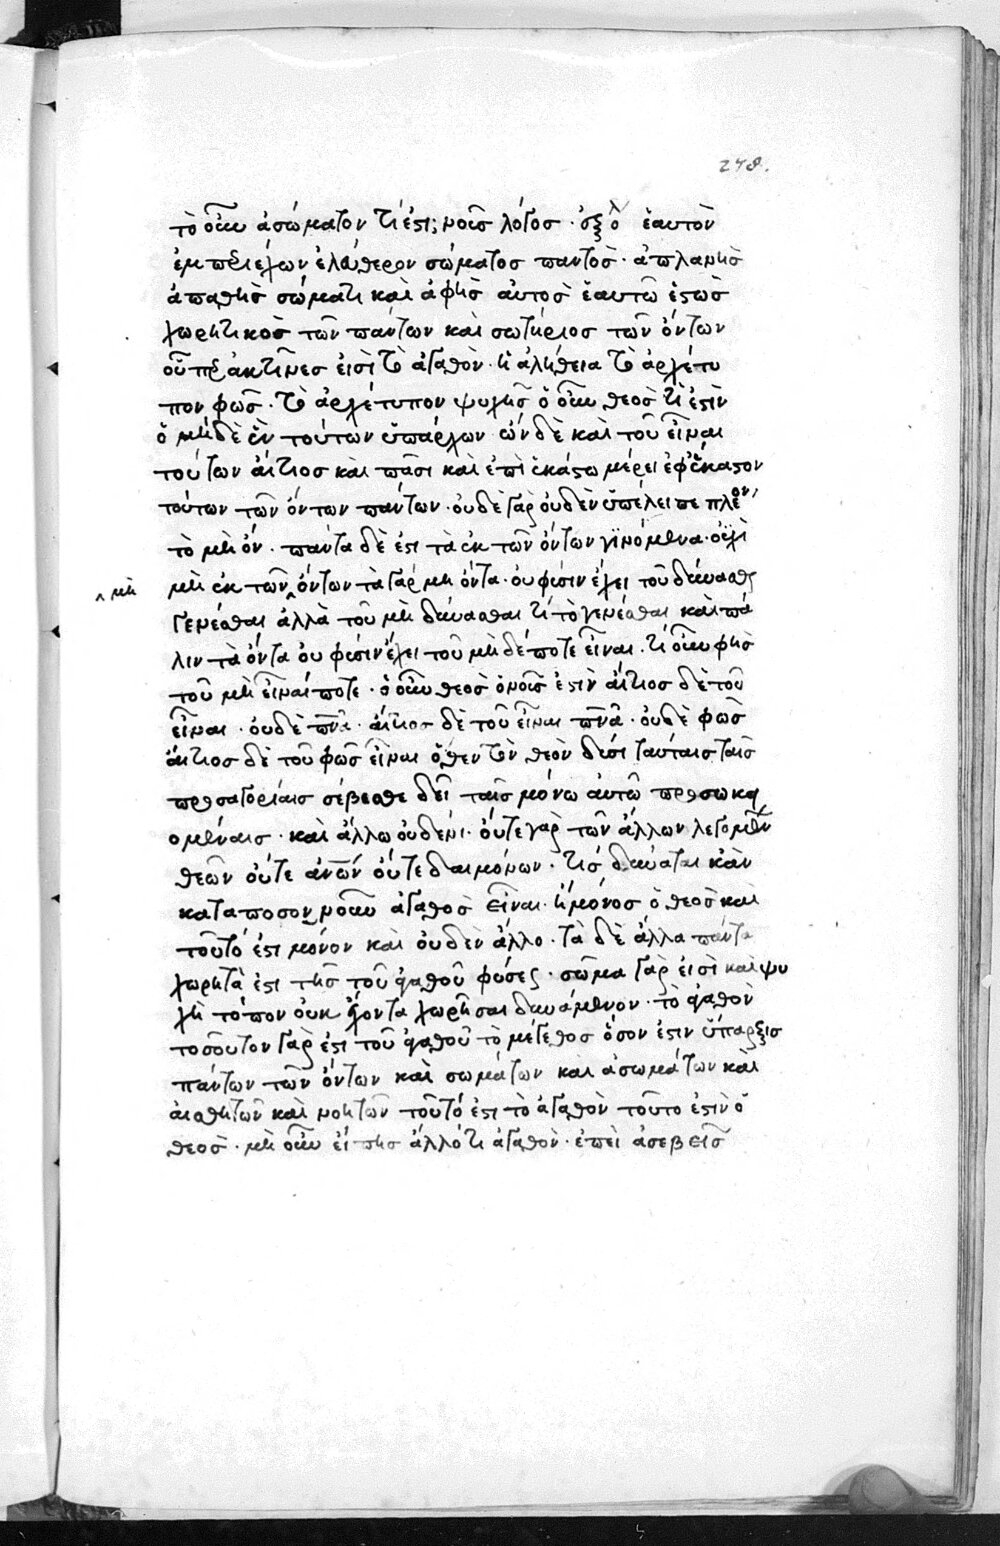 278.
τὸ οὖν ἀσώματον τί ἐστι; νοῦς λόγος · ἐξ ὅλου ἑαυτὸν
ἐμπεριέχων ἐλεύθερον σώματος παντὸς · ἀπλανὴς
ἀπαθὴς σώματι καὶ ἀφὴς αὐτὸς ἑαυτῶ ἑστὼς
χωρητικὸς τῶν πάντων καὶ σωτήριος τῶν ὄντων
οὗπερ ἀκτῖνες εἰσὶ τὸ ἀγαθὸν · ἡ ἀλήθεια τὸ ἀρχέτυ
πον φῶς · τὸ ἀρχέτυπον ψυχῆς ὁ οὖν θεὸς τί ἐστὶν
ὁ μηδὲ ἓν τούτων ὑπάρχων · ὢν δὲ καὶ τοῦ εἶναι
τούτων αἴτιος καὶ πᾶσι καὶ ἐπὶ ἑκάστω μέρει ἐφ' ἕκαστον
τούτων τῶν ὄντων πάντων · οὐδὲ γὰρ οὐδὲν ὑπέλειπε πλέον,
τὸ μὴ ὄν · πάντα δὲ ἐστι τὰ ἐκ τῶν ὄντων γινόμενα · οὐχὶ
μὴ ἐκ τῶν ‸ ὄντων τὰ γὰρ μὴ ὄντα · οὐ φύσιν ἔχει τοῦ δύνασθαι
‸ μὴ
γενέσθαι ἀλλὰ τοῦ μὴ δύνασθαι τί τὸ γενέσθαι καὶ πά
λιν τὰ ὄντα οὐ φύσιν ἔχει τοῦ μηδέποτε εἶναι · τί οὖν φῂς
τοῦ μὴ εἶναί ποτε · ὁ οὖν θεὸς ὁ νοῦς ἐστὶν αἴτιος δὲ τοῦ
εἶναι · οὐδὲ πνᾶ · αἴτιος δὲ τοῦ εἶναι πνᾶ · οὐδὲ φῶς
αἴτιος δὲ τοῦ φῶς εἶναι ὅθεν τὸν θεὸν δυσὶ ταύταις ταῖς
προσηγορίαις σέβεσθε δεῖ ταῖς μόνω αὐτῶ προσωκει
ομέναις · καὶ ἄλλω οὐδενί · οὔτε γὰρ τῶν ἄλλων λεγομένων
θεῶν οὔτε ἀνῶν οὔτε δαιμόνων · τίς δύναται κἂν
καταποσὸν νοῦν ἀγαθὸς εἶναι · ἢ μόνος ὁ θεὸς καὶ
τοῦτό ἐστι μόνον καὶ οὐδὲν ἄλλο · τὰ δὲ ἄλλα πάντα
χωρητά ἐστι τῆς τοῦ ἀγαθοῦ φύσεως · σῶμα γάρ εἰσὶ καὶ ψυ
χὴ τόπον οὐκ ἔχοντα χωρῆσαι δυνάμενον · τὸ ἀγαθὸν
τοσοῦτον γάρ ἐστι τοῦ ἀγαθοῦ τὸ μέγεθος ὅσον ἐστιν ὕπαρξις
πάντων τῶν ὄντων καὶ σωμάτων καὶ ἀσωμάτων καὶ
αἰσθητῶν καὶ νοητῶν τοῦτό ἐστι τὸ ἀγαθὸν τοῦτο ἐστὶν ὁ
θεὸς · μὴ οὖν εἴπης ἄλλό τι ἀγαθὸν · ἐπεὶ ἀσεβεῖς